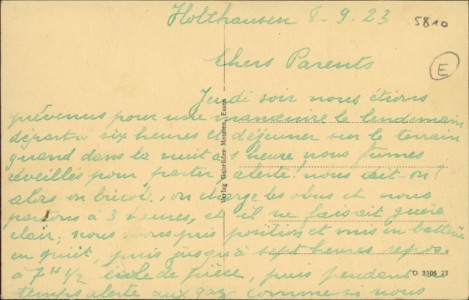 Holthausen 8-9.23
5810
E
Chers Parents
Jeudi soir nous étions
prévenus pour une manœuvre le lendemain
départ a six heures et déjeuner sur le terrain
quand dans la nuit a heure nous fumes
réveillés pour partir alerte! nous dit-on!
alors on on charge les obus et nous
partons a 3 heures, et il ne faisait guère
clair; nous avons pris position et mis en batterie
en puis jusqu'à sept heures repos.
a 7H 1/2 école de pièce, puis pendant
temps alerte aux gaz comme si nous
Verlag Essen
D 3106 22